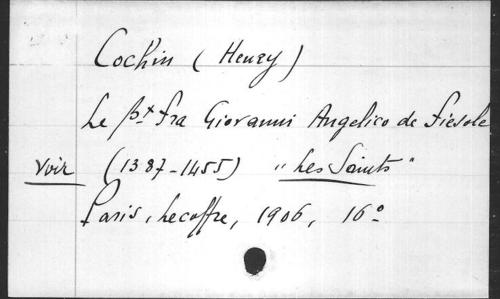 Cochin (Henry)
Le Bx Fra Giovanni Angelico de Fiesole
voir (1387-1455) "Les Saints"
Paris, Lecoffre, 1906, 16º